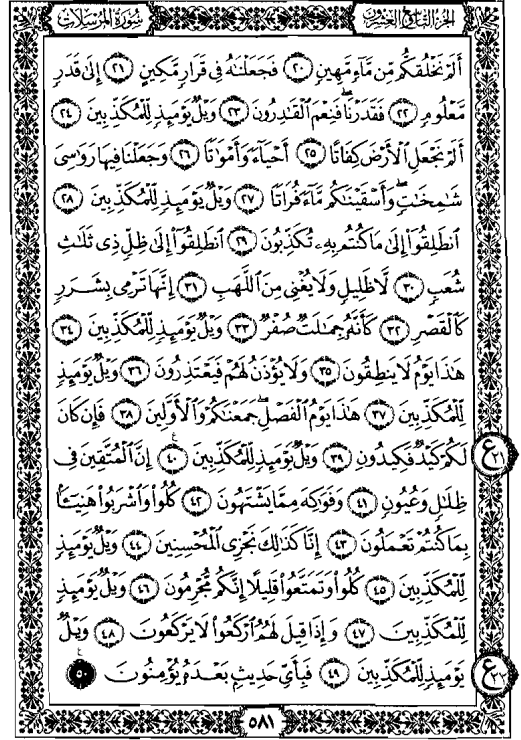 الجزء التاسع والعشرون سورة المرسلات
أَلَمْ نَخْلُقكُّم مِّن مَّآءٍ مَّهِينٍ ٢٠ فَجَعَلْنَٰهُ فِى قَرَارٍ مَّكِينٍ ٢١ إِلَىٰ قَدَرٍ
مَّعْلُومٍ ٢٢ فَقَدَرْنَا فَنِعْمَ ٱلْقَٰدِرُونَ ٢٣ وَيْلٌ يَوْمَئِذٍ لِّلْمُكَذِّبِينَ ٢٤
أَلَمْ نَجْعَلِ ٱلْأَرْضَ كِفَاتًا ٢٥ أَحْيَآءً وَأَمْوَٰتًا ٢٦ وَجَعَلْنَا فِيهَا رَوَٰسِىَ
شَٰمِخَٰتٍ وَأَسْقَيْنَٰكُم مَّآءً فُرَاتًا ٢٧ وَيْلٌ يَوْمَئِذٍ لِّلْمُكَذِّبِينَ ٢٨
ٱنطَلِقُوٓا۟ إِلَىٰ مَا كُنتُم بِهِۦ تُكَذِّبُونَ ٢٩ ٱنطَلِقُوٓا۟ إِلَىٰ ظِلٍّ ذِى ثَلَٰثِ
شُعَبٍ ٣٠ لَّا ظَلِيلٍ وَلَا يُغْنِى مِنَ ٱللَّهَبِ ٣١ إِنَّهَا تَرْمِى بِشَرَرٍ
كَٱلْقَصْرِ ٣٢ كَأَنَّهُۥ جِمَٰلَتٌ صُفْرٌ ٣٣ وَيْلٌ يَوْمَئِذٍ لِّلْمُكَذِّبِينَ ٣٤
هَٰذَا يَوْمُ لَا يَنطِقُونَ ٣٥ وَلَا يُؤْذَنُ لَهُمْ فَيَعْتَذِرُونَ ٣٦ وَيْلٌ يَوْمَئِذٍ
لِّلْمُكَذِّبِينَ ٣٧ هَٰذَا يَوْمُ ٱلْفَصْلِ جَمَعْنَٰكُمْ وَٱلْأَوَّلِينَ ٣٨ فَإِن كَانَ
لَكُمْ كَيْدٌ فَكِيدُونِ ٣٩ وَيْلٌ يَوْمَئِذٍ لِّلْمُكَذِّبِينَ ٤٠ إِنَّ ٱلْمُتَّقِينَ فِى
ع ٢١
ظِلَٰلٍ وَعُيُونٍ ٤١ وَفَوَٰكِهَ مِمَّا يَشْتَهُونَ ٤٢ كُلُوا۟ وَٱشْرَبُوا۟ هَنِيٓـًٔۢا
بِمَا كُنتُمْ تَعْمَلُونَ ٤٣ إِنَّا كَذَٰلِكَ نَجْزِى ٱلْمُحْسِنِينَ ٤٤ وَيْلٌ يَوْمَئِذٍ
لِّلْمُكَذِّبِينَ ٤٥ كُلُوا۟ وَتَمَتَّعُوا۟ قَلِيلًا إِنَّكُم مُّجْرِمُونَ ٤٦ وَيْلٌ يَوْمَئِذٍ
لِّلْمُكَذِّبِينَ ٤٧ وَإِذَا قِيلَ لَهُمُ ٱرْكَعُوا۟ لَا يَرْكَعُونَ ٤٨ وَيْلٌ
يَوْمَئِذٍ لِّلْمُكَذِّبِينَ ٤٩ فَبِأَىِّ حَدِيثٍۭ بَعْدَهُۥ يُؤْمِنُونَ ٥٠
ع ٢٢
٥٨١